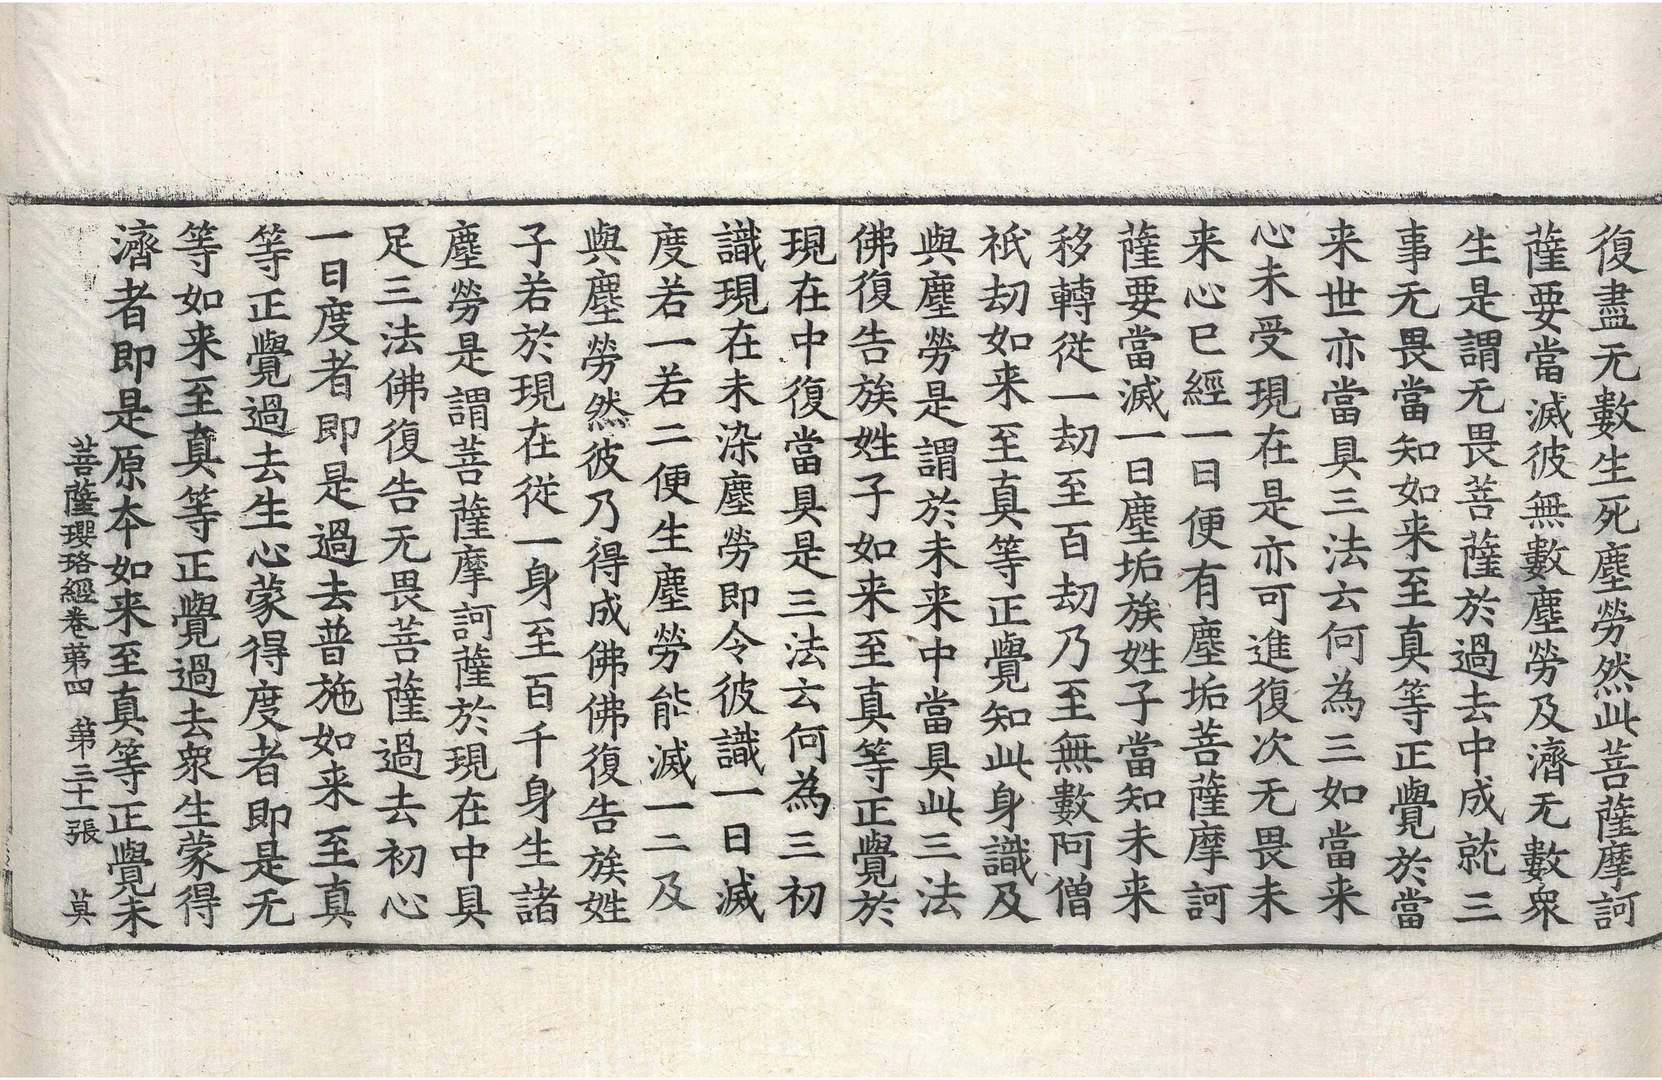 復盡无數生死塵勞然此菩薩摩訶
薩要當滅彼無數塵勞及濟无數衆
生是謂无畏菩薩於過去中成就三
事无畏當知如来至真等正覺於當
来世亦當具三法云何為三如當来
心未受現在是亦可進復次无畏未
来心已經一日便有塵垢菩薩摩訶
薩要當滅一日塵垢族姓子當知未来
移轉從一劫至百劫乃至無數阿僧
祇劫如来至真等正覺知此身識及
與塵勞是謂於未来中當具此三法
佛復告族姓子如来至真等正覺於
現在中復當具是三法云何為三初
識現在未染塵勞即令彼識一日滅
度若一若二便生塵勞能滅一二及
與塵勞然彼乃得成佛佛復告族姓
子若於現在從一身至百千身生諸
塵勞是謂菩薩摩訶薩於現在中具
足三法佛復告无畏菩薩過去初心
一日度者即是過去普施如来至真
等正覺過去生心蒙得度者即是无
等如来至真等正覺過去衆生蒙得
濟者即是原本如来至真等正覺未
菩薩瓔珞經卷第四　第三十一張　莫